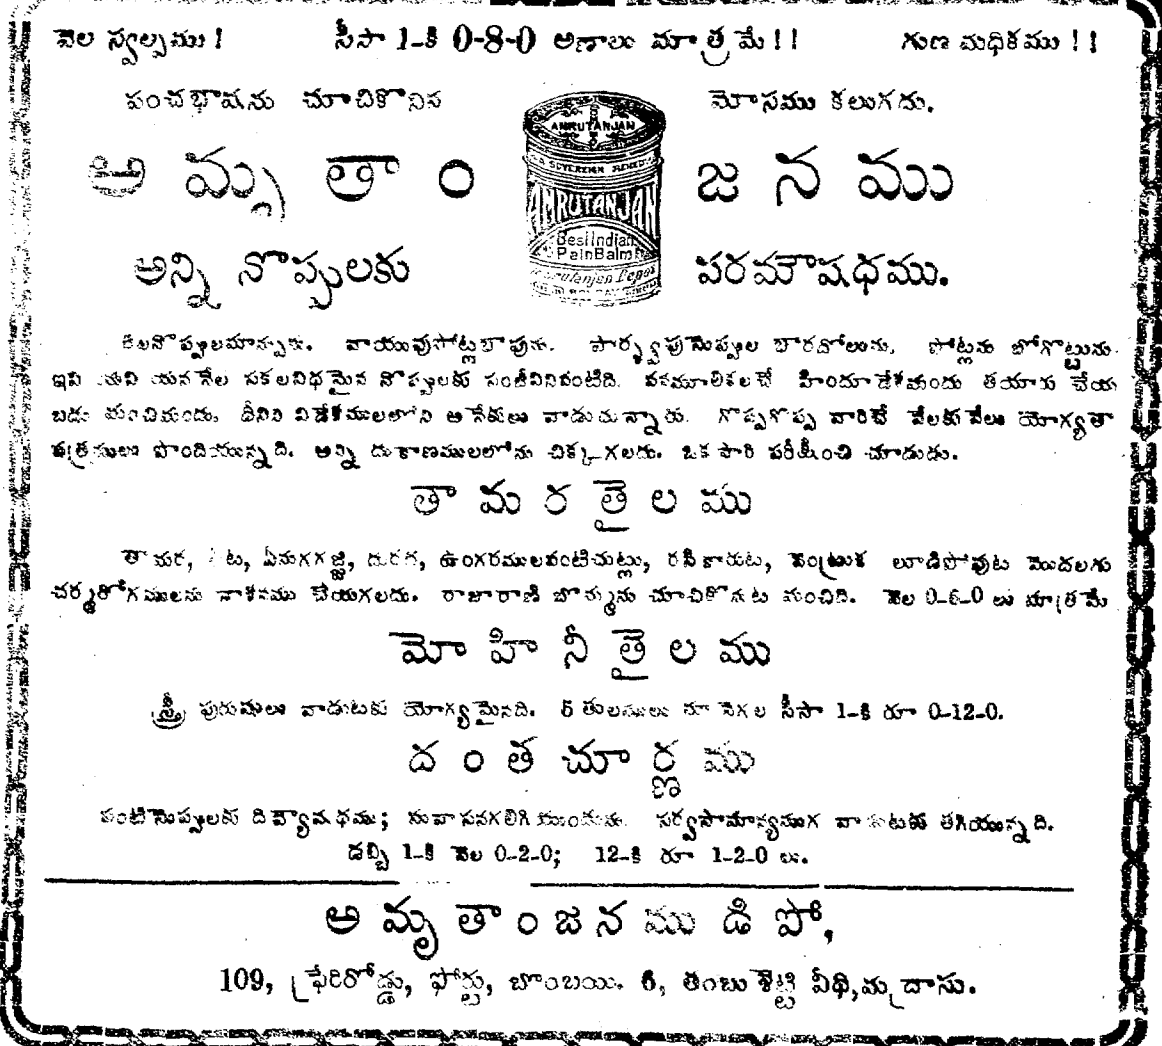 వెల స్వల్పము! సీసా 1-కి 0-8-0 అణాలు మాత్రమే!! గుణ మధికము!!
పంచభాషను చూచికొనిన మోసము కలుగదు.
అమృతాంజనము
AMRUTANJAN
A SOVEREIGN REMEDY
AMRUTANJAN
Best Indian
Pain Balm
Amrutanjan Depot
అన్ని నొప్పులకు పరమౌషధము.
తలనొప్పులమాన్పును. వాయువుపోట్లబాపును. పార్శ్వపునొప్పుల భారదోలును, పోట్లను బోగొట్టును.
ఇది యని యననేల సకలవిధమైన నొప్పులకు సంజీవినివంటిది. వనమూలికలచే హిందూదేశమందు తయారు చేయ
బడు మంచిమందు. దీనిని విదేశములలోని అనేకులు వాడుచున్నారు. గొప్పగొప్ప వారిచే వేలకువేలు యోగ్యతా
పత్రములు పొందియున్నది. అన్ని దుకాణములలోను చిక్కగలదు. ఒక సారి పరీక్షించి చూడుడు.
తామరతైలము
తామర, తీట, ఏనుగగజ్జి, దురద, ఉంగరములవంటిచుట్లు, రసికారుట, వెంట్రుక లూడిపోవుట మొదలగు
చర్మరోగములను నాశనము చేయగలదు. రాజారాణి బొమ్మను చూచికొనుట మంచిది. వెల 0-6-0 లు మాత్రమే
మోహినీతైలము
స్త్రీ పురుషులు వాడుటకు యోగ్యమైనది. 6 తులములు నూనెగల సీసా 1-కి రూ 0-12-0.
దంతచూర్ణము
పంటినొప్పులకు దివ్యౌషధము; సువాసనగలిగి యుండును. సర్వసామాన్యముగ వాడుటకు తగియున్నది.
డబ్బి 1-కి వెల 0-2-0; 12-కి రూ 1-2-0 లు.
అమృతాంజనము డిపో,
109, ఫ్రేరిరోడ్డు, ఫోర్టు, బొంబయి. 6, తంబుశెట్టి వీథి, మద్రాసు.